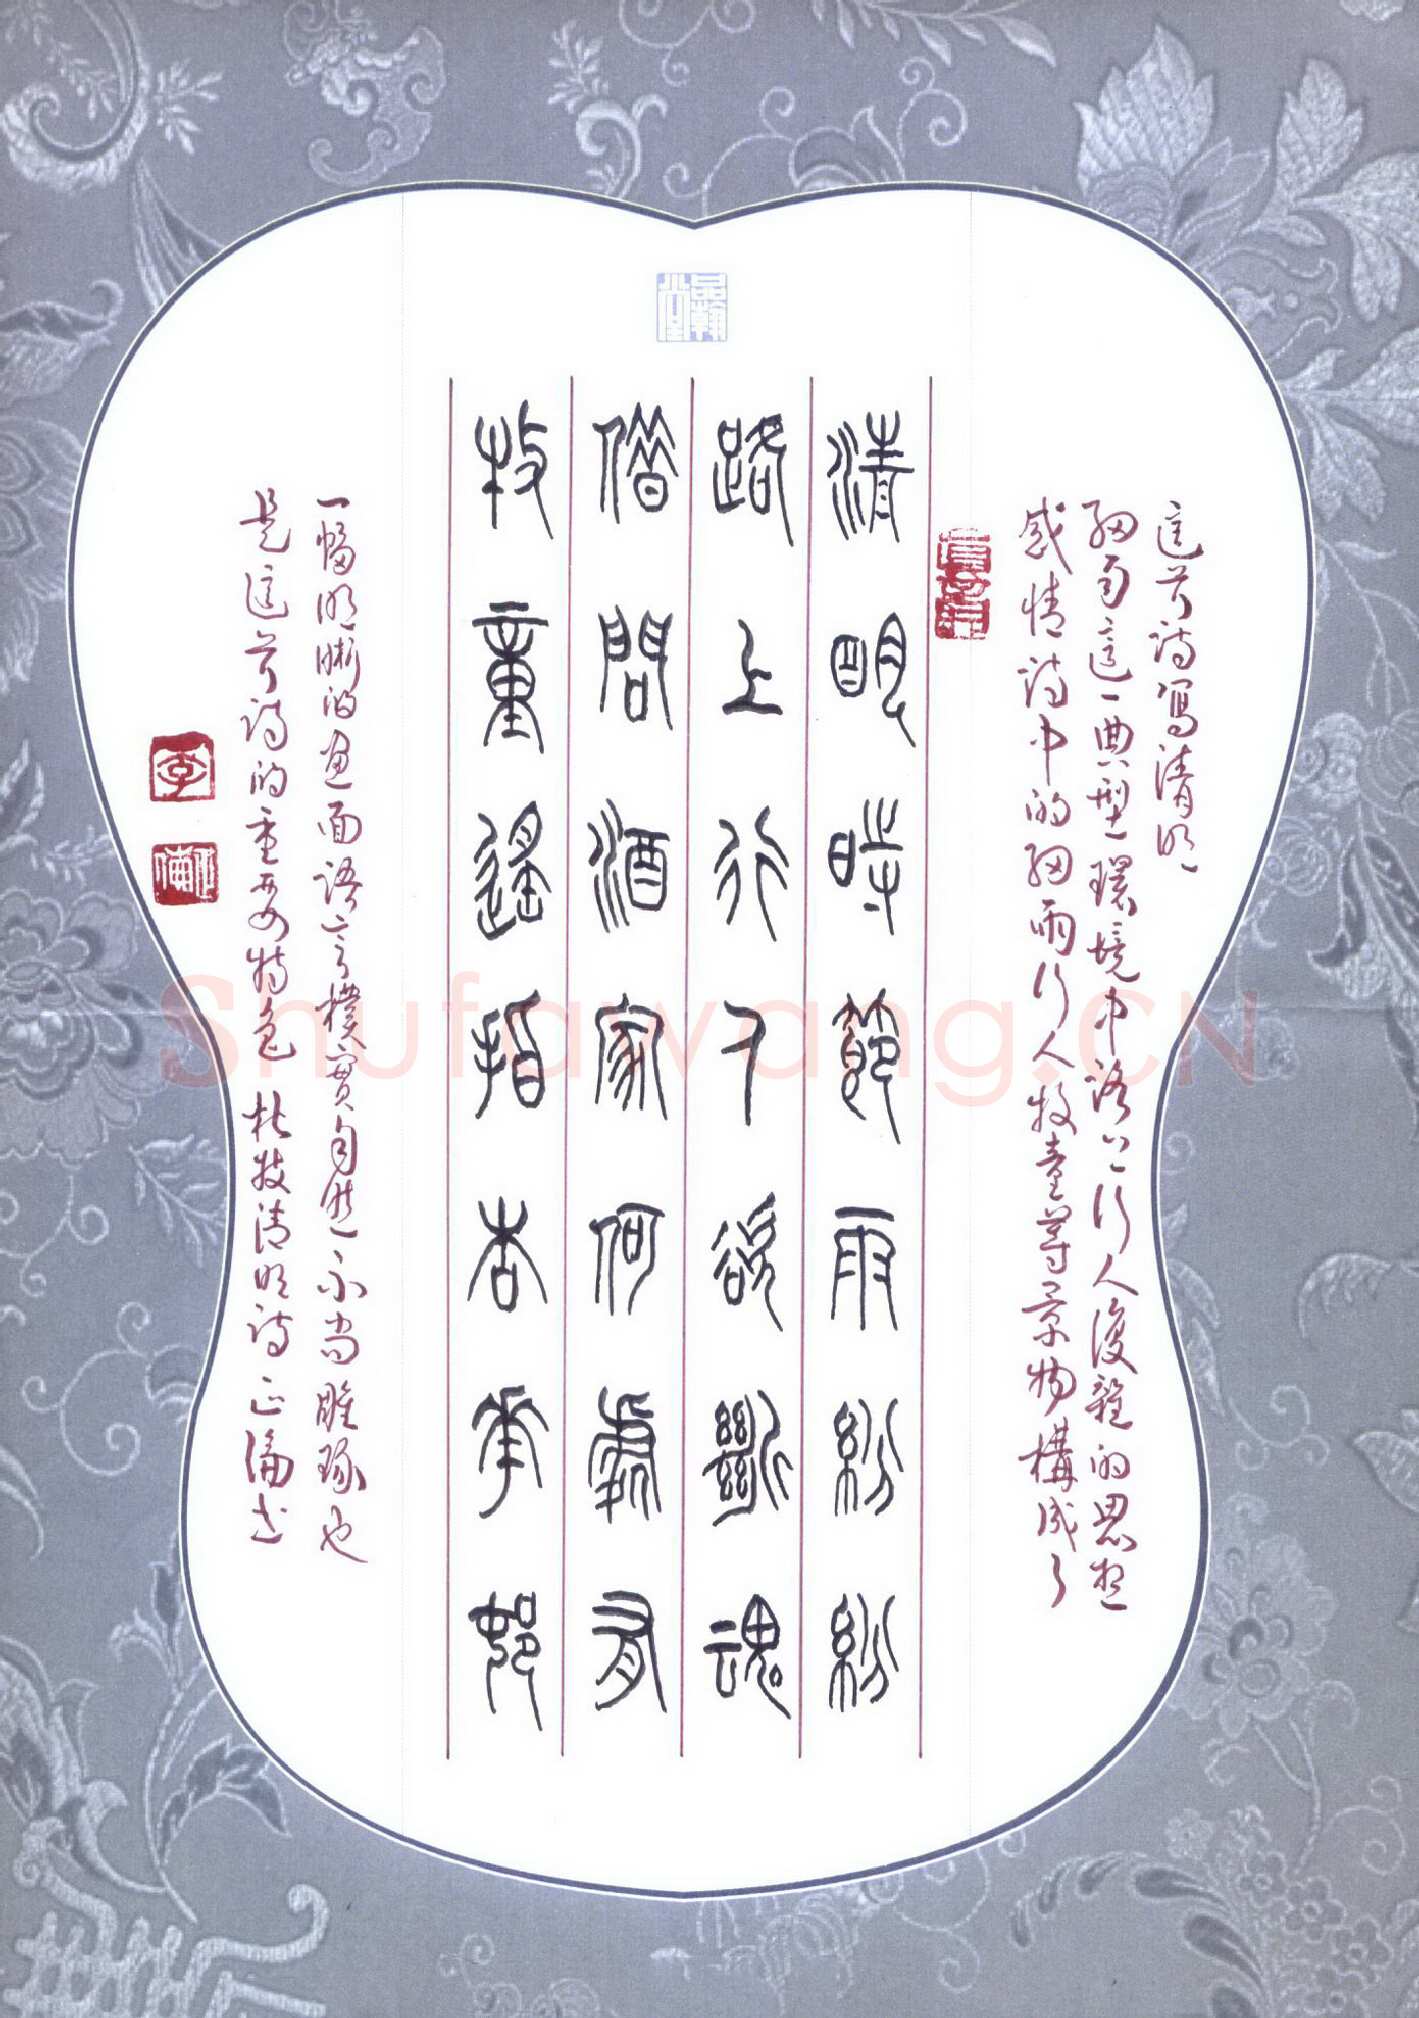 這首詩寫清明
細雨這一典型環境中路上行人復雜的思想
感情詩中的細雨行人牧童等景物構成了
清明時節雨紛紛
路上行人欲斷魂
借問酒家何處有
牧童遙指杏花邨
一幅明晰的畫面語言樸實自然不尚雕琢也
是這首詩的重要特色 杜牧清明詩 正倫書
品翰堂
李
Shufawang.CN